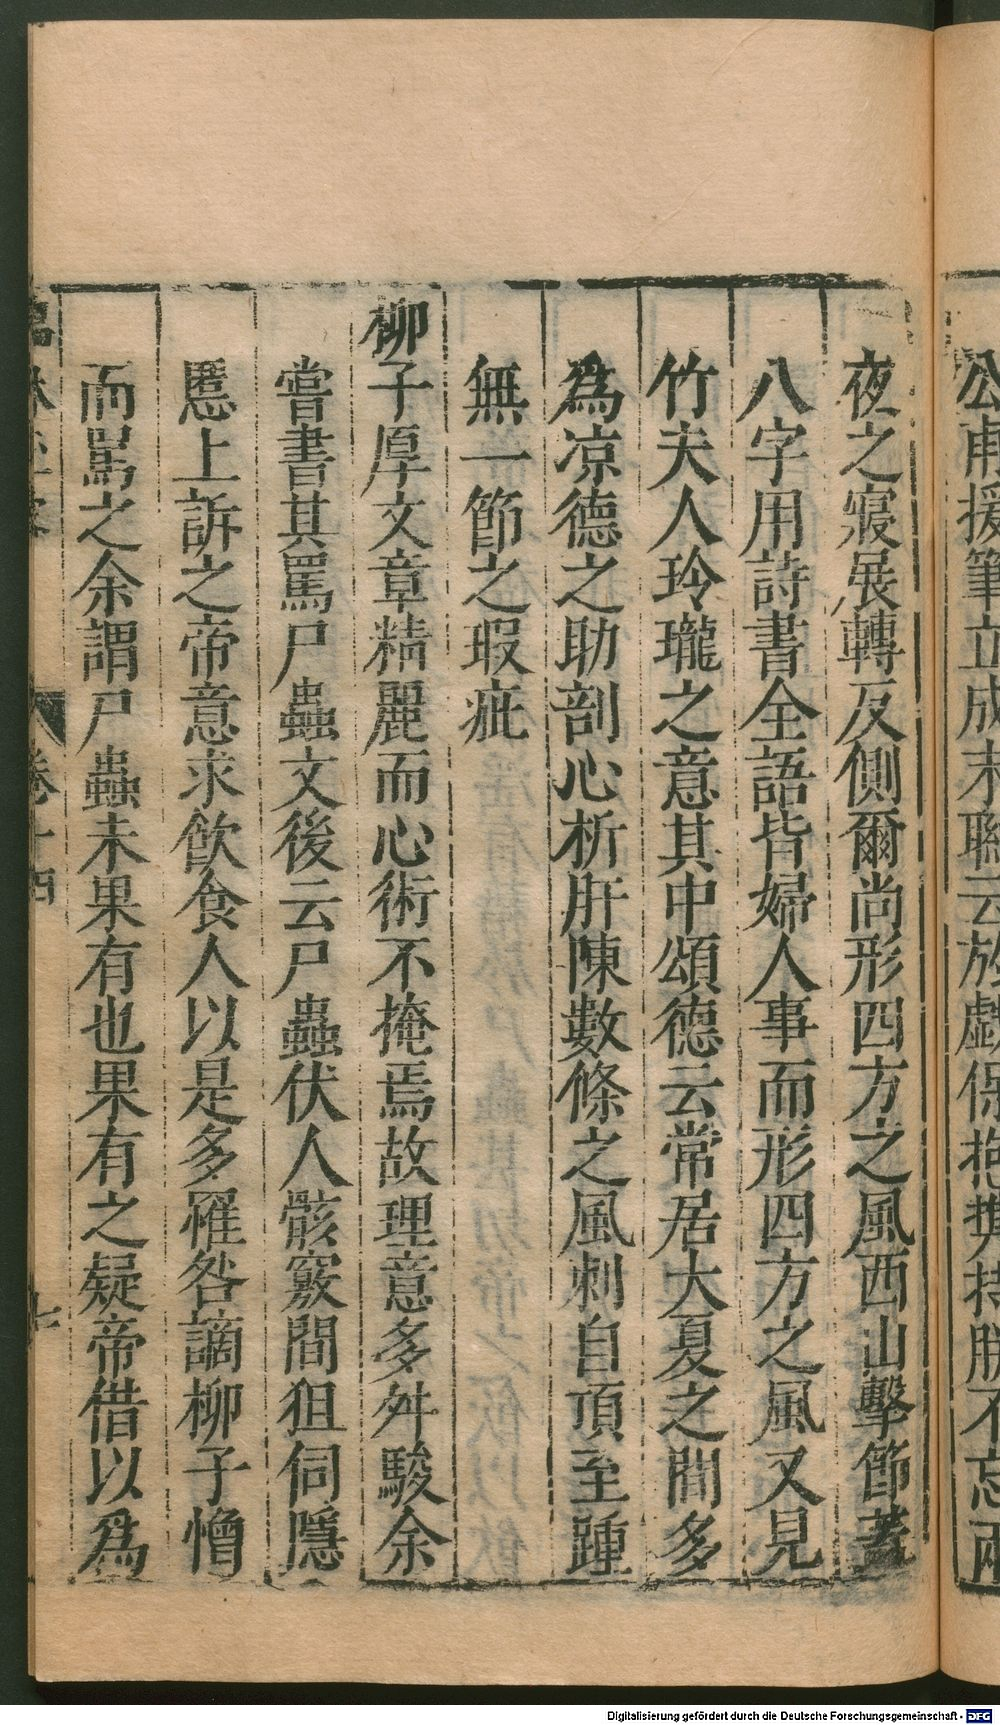 公甫援筆立成末聯云放戲保抱携持朕不忘兩
夜之寢展轉反側爾尚形四方之風西山擊節葢
八字用詩書全語皆婦人事而形四方之風又見
竹夫人玲瓏之意其中頌德云常居大夏之間多
爲凉德之助剖心析肝陳數條之風刺自頂至踵
無一節之瑕疵
柳子厚文章精麗而心術不掩焉故理意多舛駮余
嘗書其罵尸蟲文後云尸蟲伏人骸竅間狙伺隱
慝上訴之帝意求飮食人以是多罹咎謫柳子憎
而罵之余謂尸蟲未果有也果有之疑帝借以爲
卷十四
七
Digitalisierung gefördert durch die Deutsche Forschungsgemeinschaft - DFG